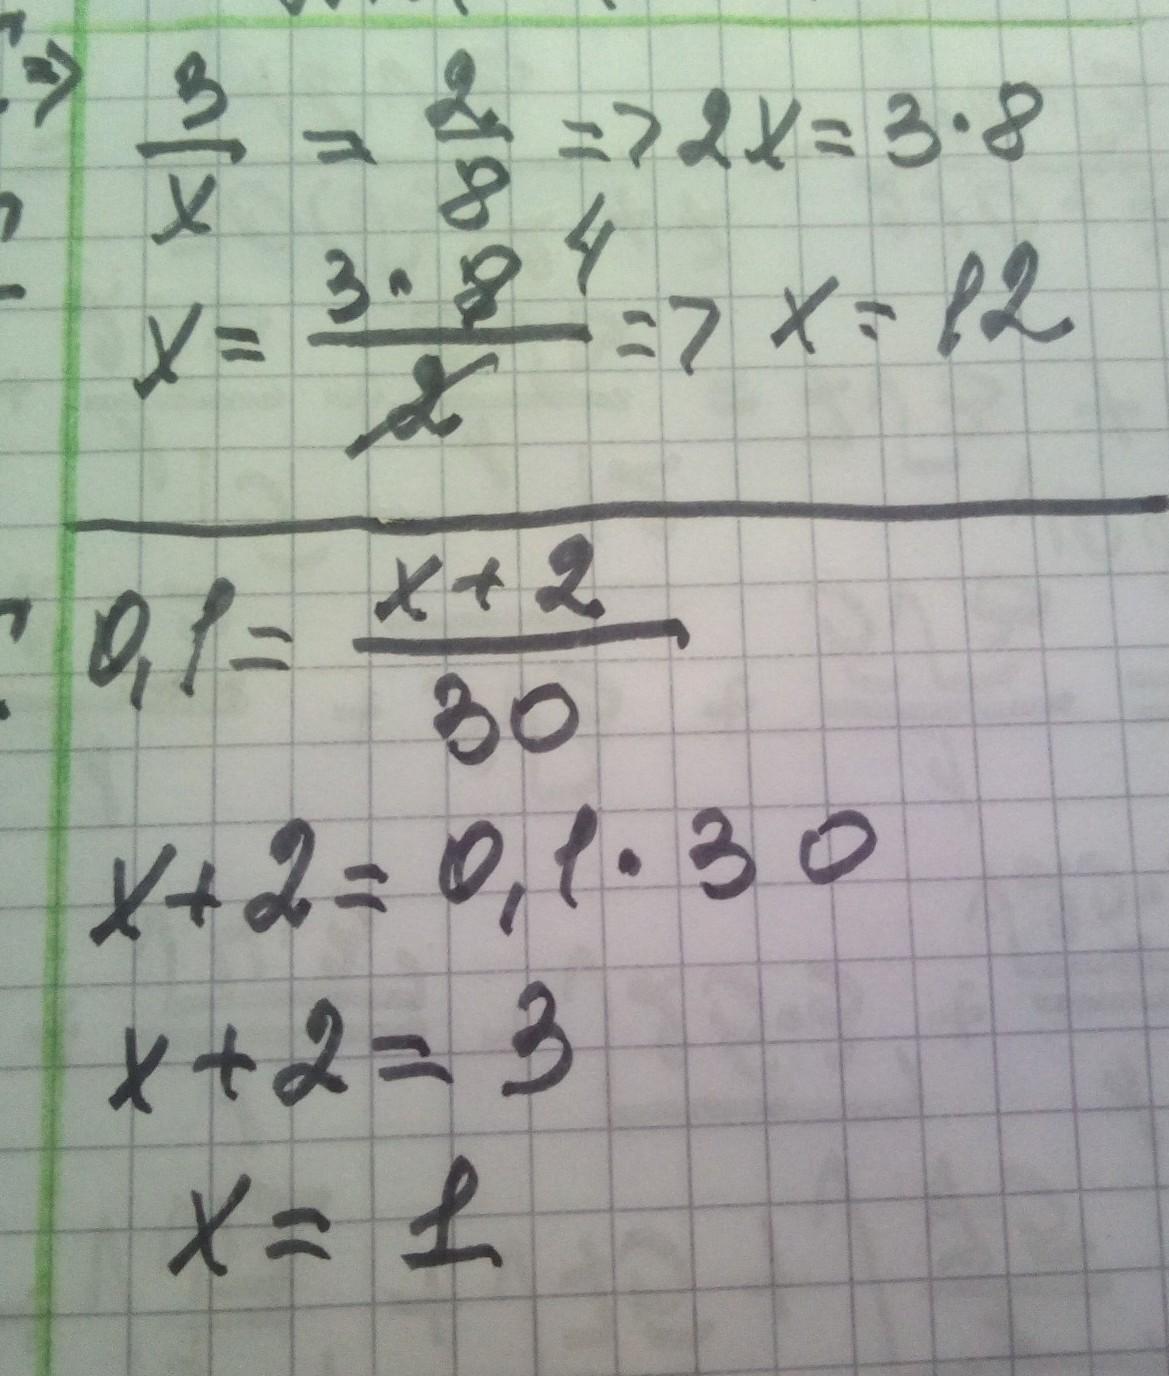 => 3/x = 2/8 => 2x = 3·8
x = 3·8/2 4 => x = 12
0,1 = x+2/30
x+2 = 0,1·30
x+2 = 3
x = 1